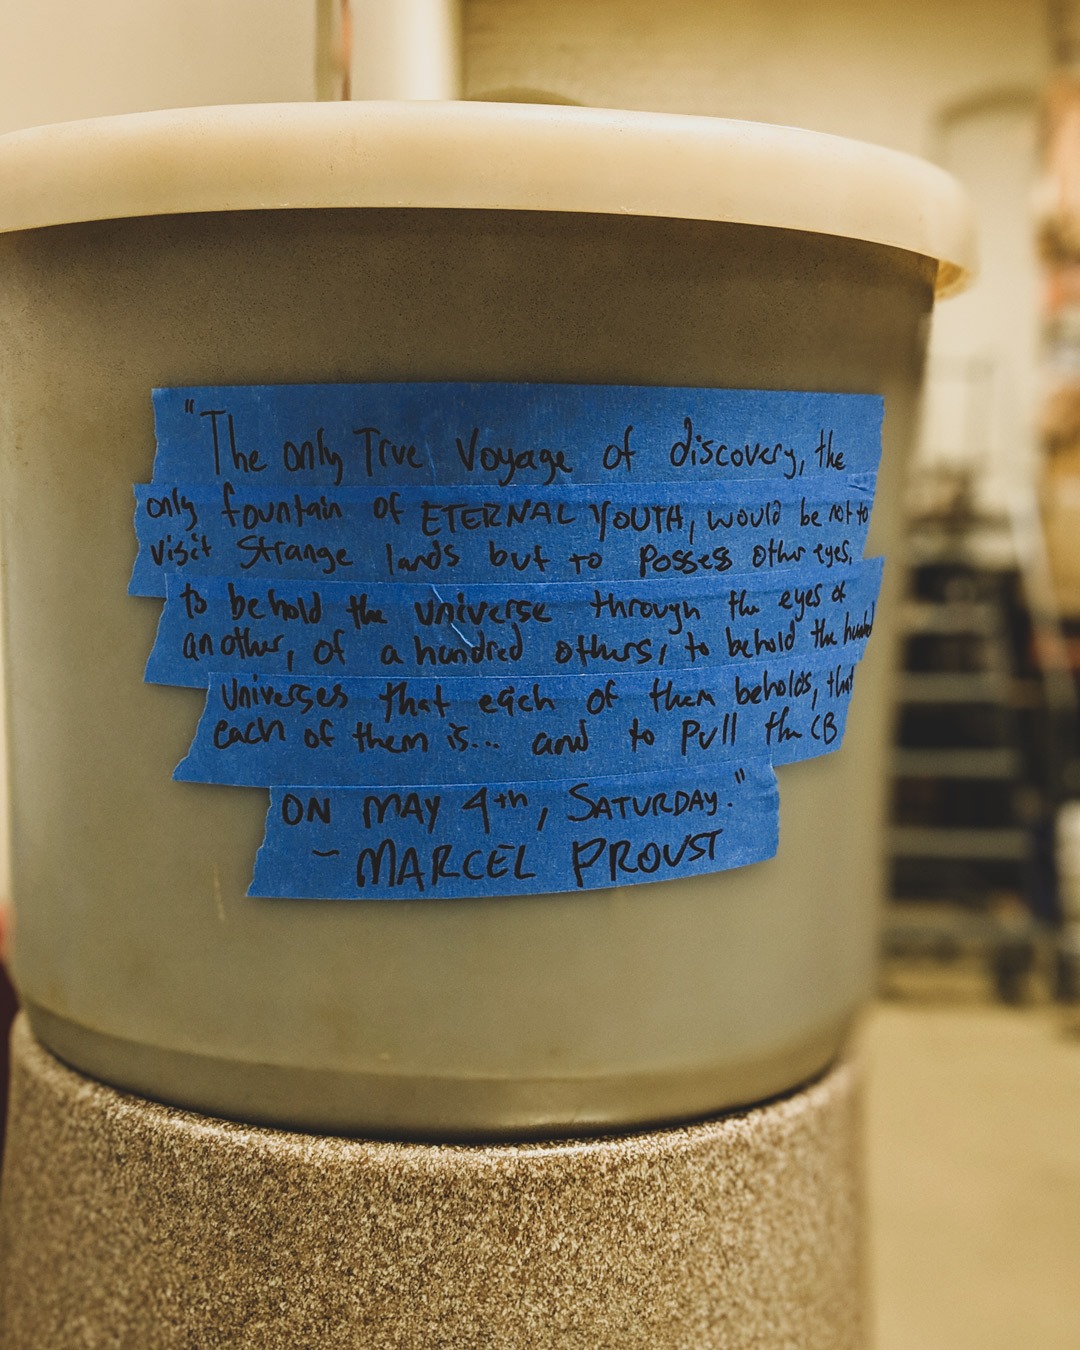 "The only True Voyage of discovery, the
only fountain of ETERNAL YOUTH, would be not to
visit Strange lands but to Possess other eyes,
to behold the universe through the eyes of
another, of a hundred others, to behold the hundred
Universes that each of them beholds, that
each of them is... and to Pull the CB
ON MAY 4th, SATURDAY."
~ MARCEL PROUST